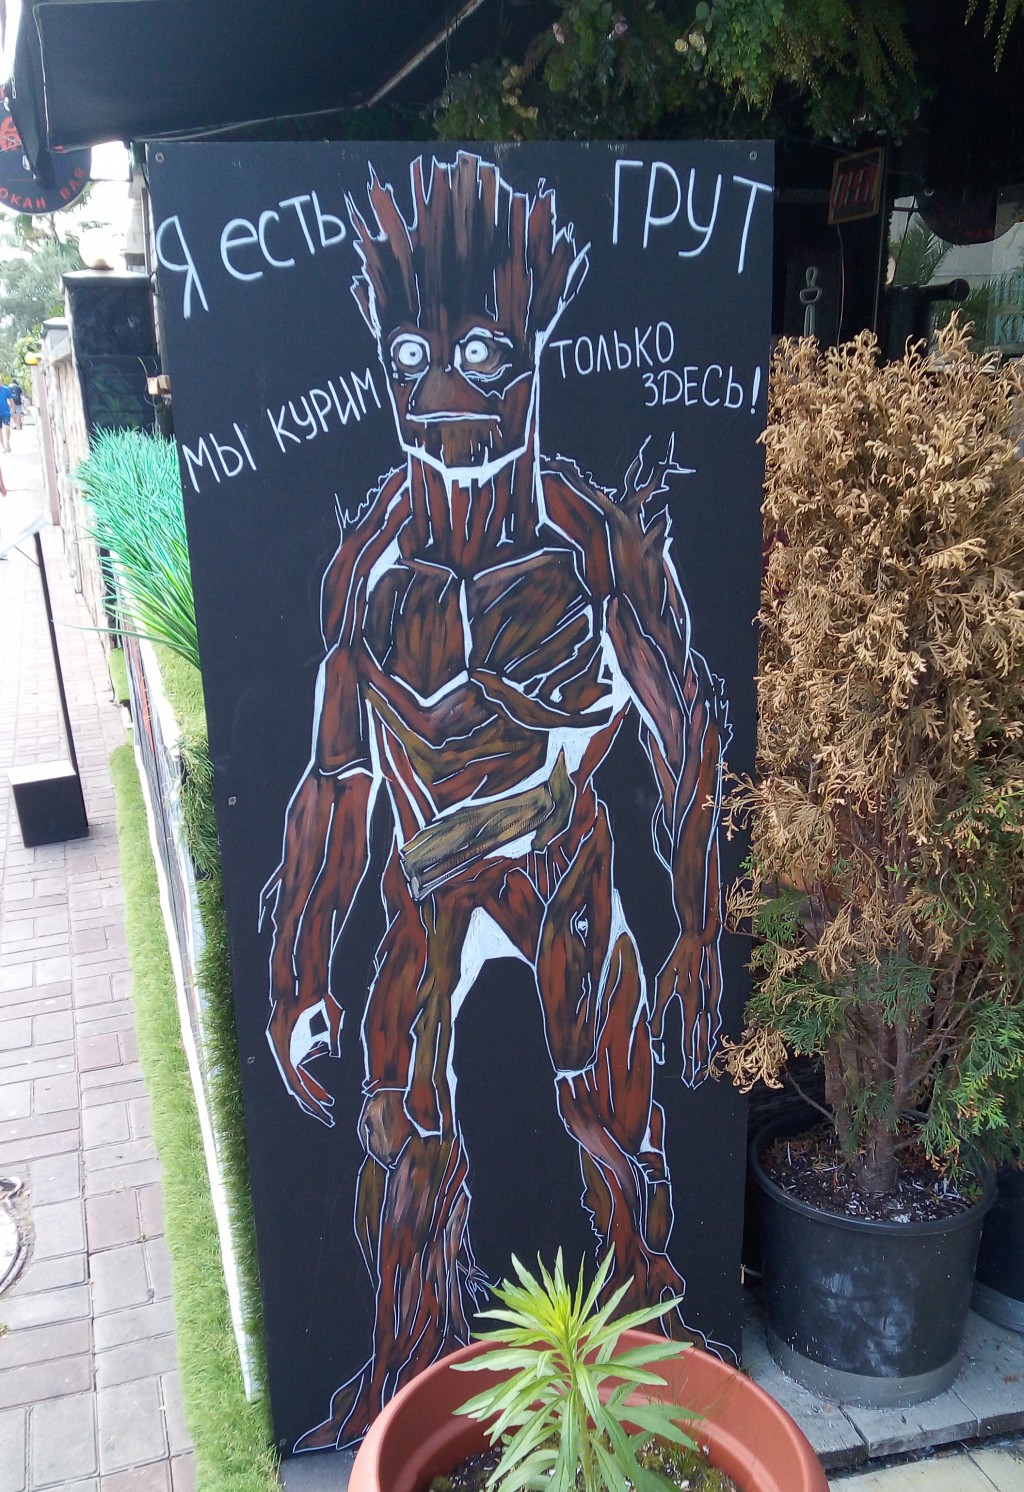 Я есть ГРУТ
МЫ КУРИМ ТОЛЬКО
ЗДЕСЬ!
БАР